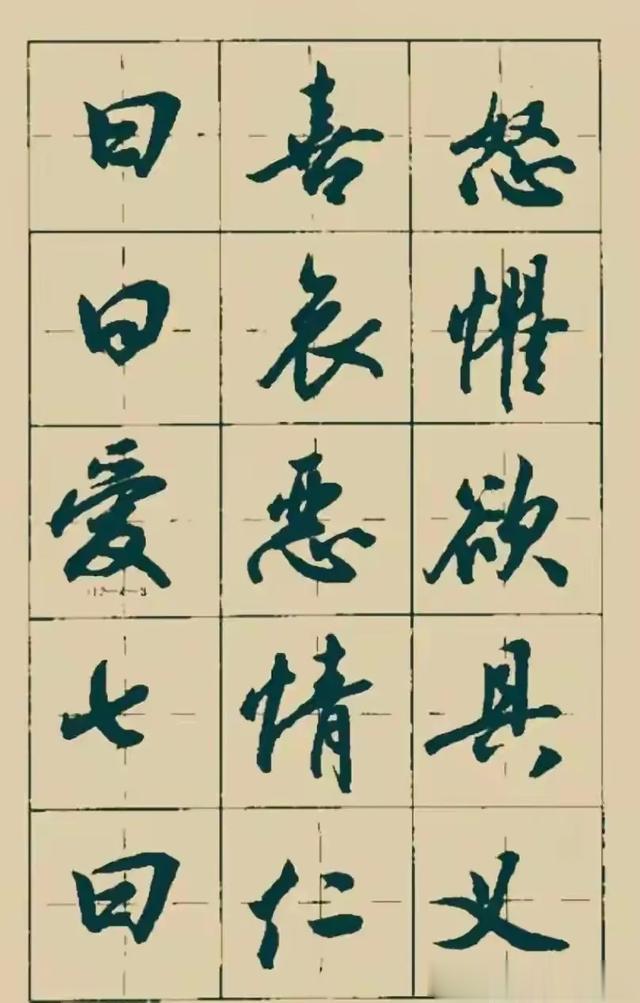 曰喜怒
曰哀懼
爱惡欲
七情具
曰仁义